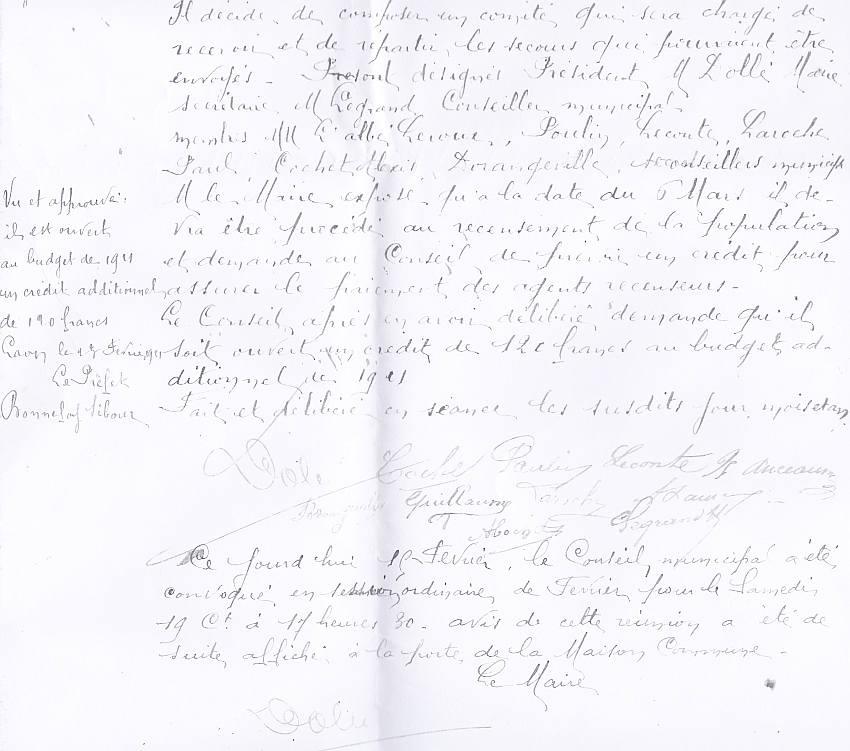 Il décide de composer un comité qui sera chargé de
recevoir et de répartir les secours qui pourraient être
envoyés - sont désignés Président M Dollé Maire
secrétaire M Legrand Conseiller municipal
membres MM l'abbé Leroux, Poulin, Leconte, Laroche
Paul Cochet Alexis, Dorangeville, conseillers municip
M le Maire expose qu'à la date du 5 Mars il de-
vra être procédé au recensement de la population
et demande au Conseil de prévoir un crédit pour
assurer le paiement des agents recenseurs -
Le Conseil, après en avoir délibéré demande qu'il
soit ouvert un crédit de 120 francs au budget ad-
ditionnel de 1911
Fait et délibéré en séance les susdits jour mois et an
Vu et approuvé:
il est ouvert
au budget de 1911
un crédit additionnel
de 120 francs
Laon le Février
Le Préfet
Dollé Cochet Poulin Leconte
Guillaume
Legrand
Ce jourd'hui 15 Février, le Conseil municipal a été
convoqué en session ordinaire de Février pour le Samedi
19 Ct à 17 heures 30 - avis de cette réunion a été de
suite affiché à la porte de la Maison Commune -
Le Maire
Dollé